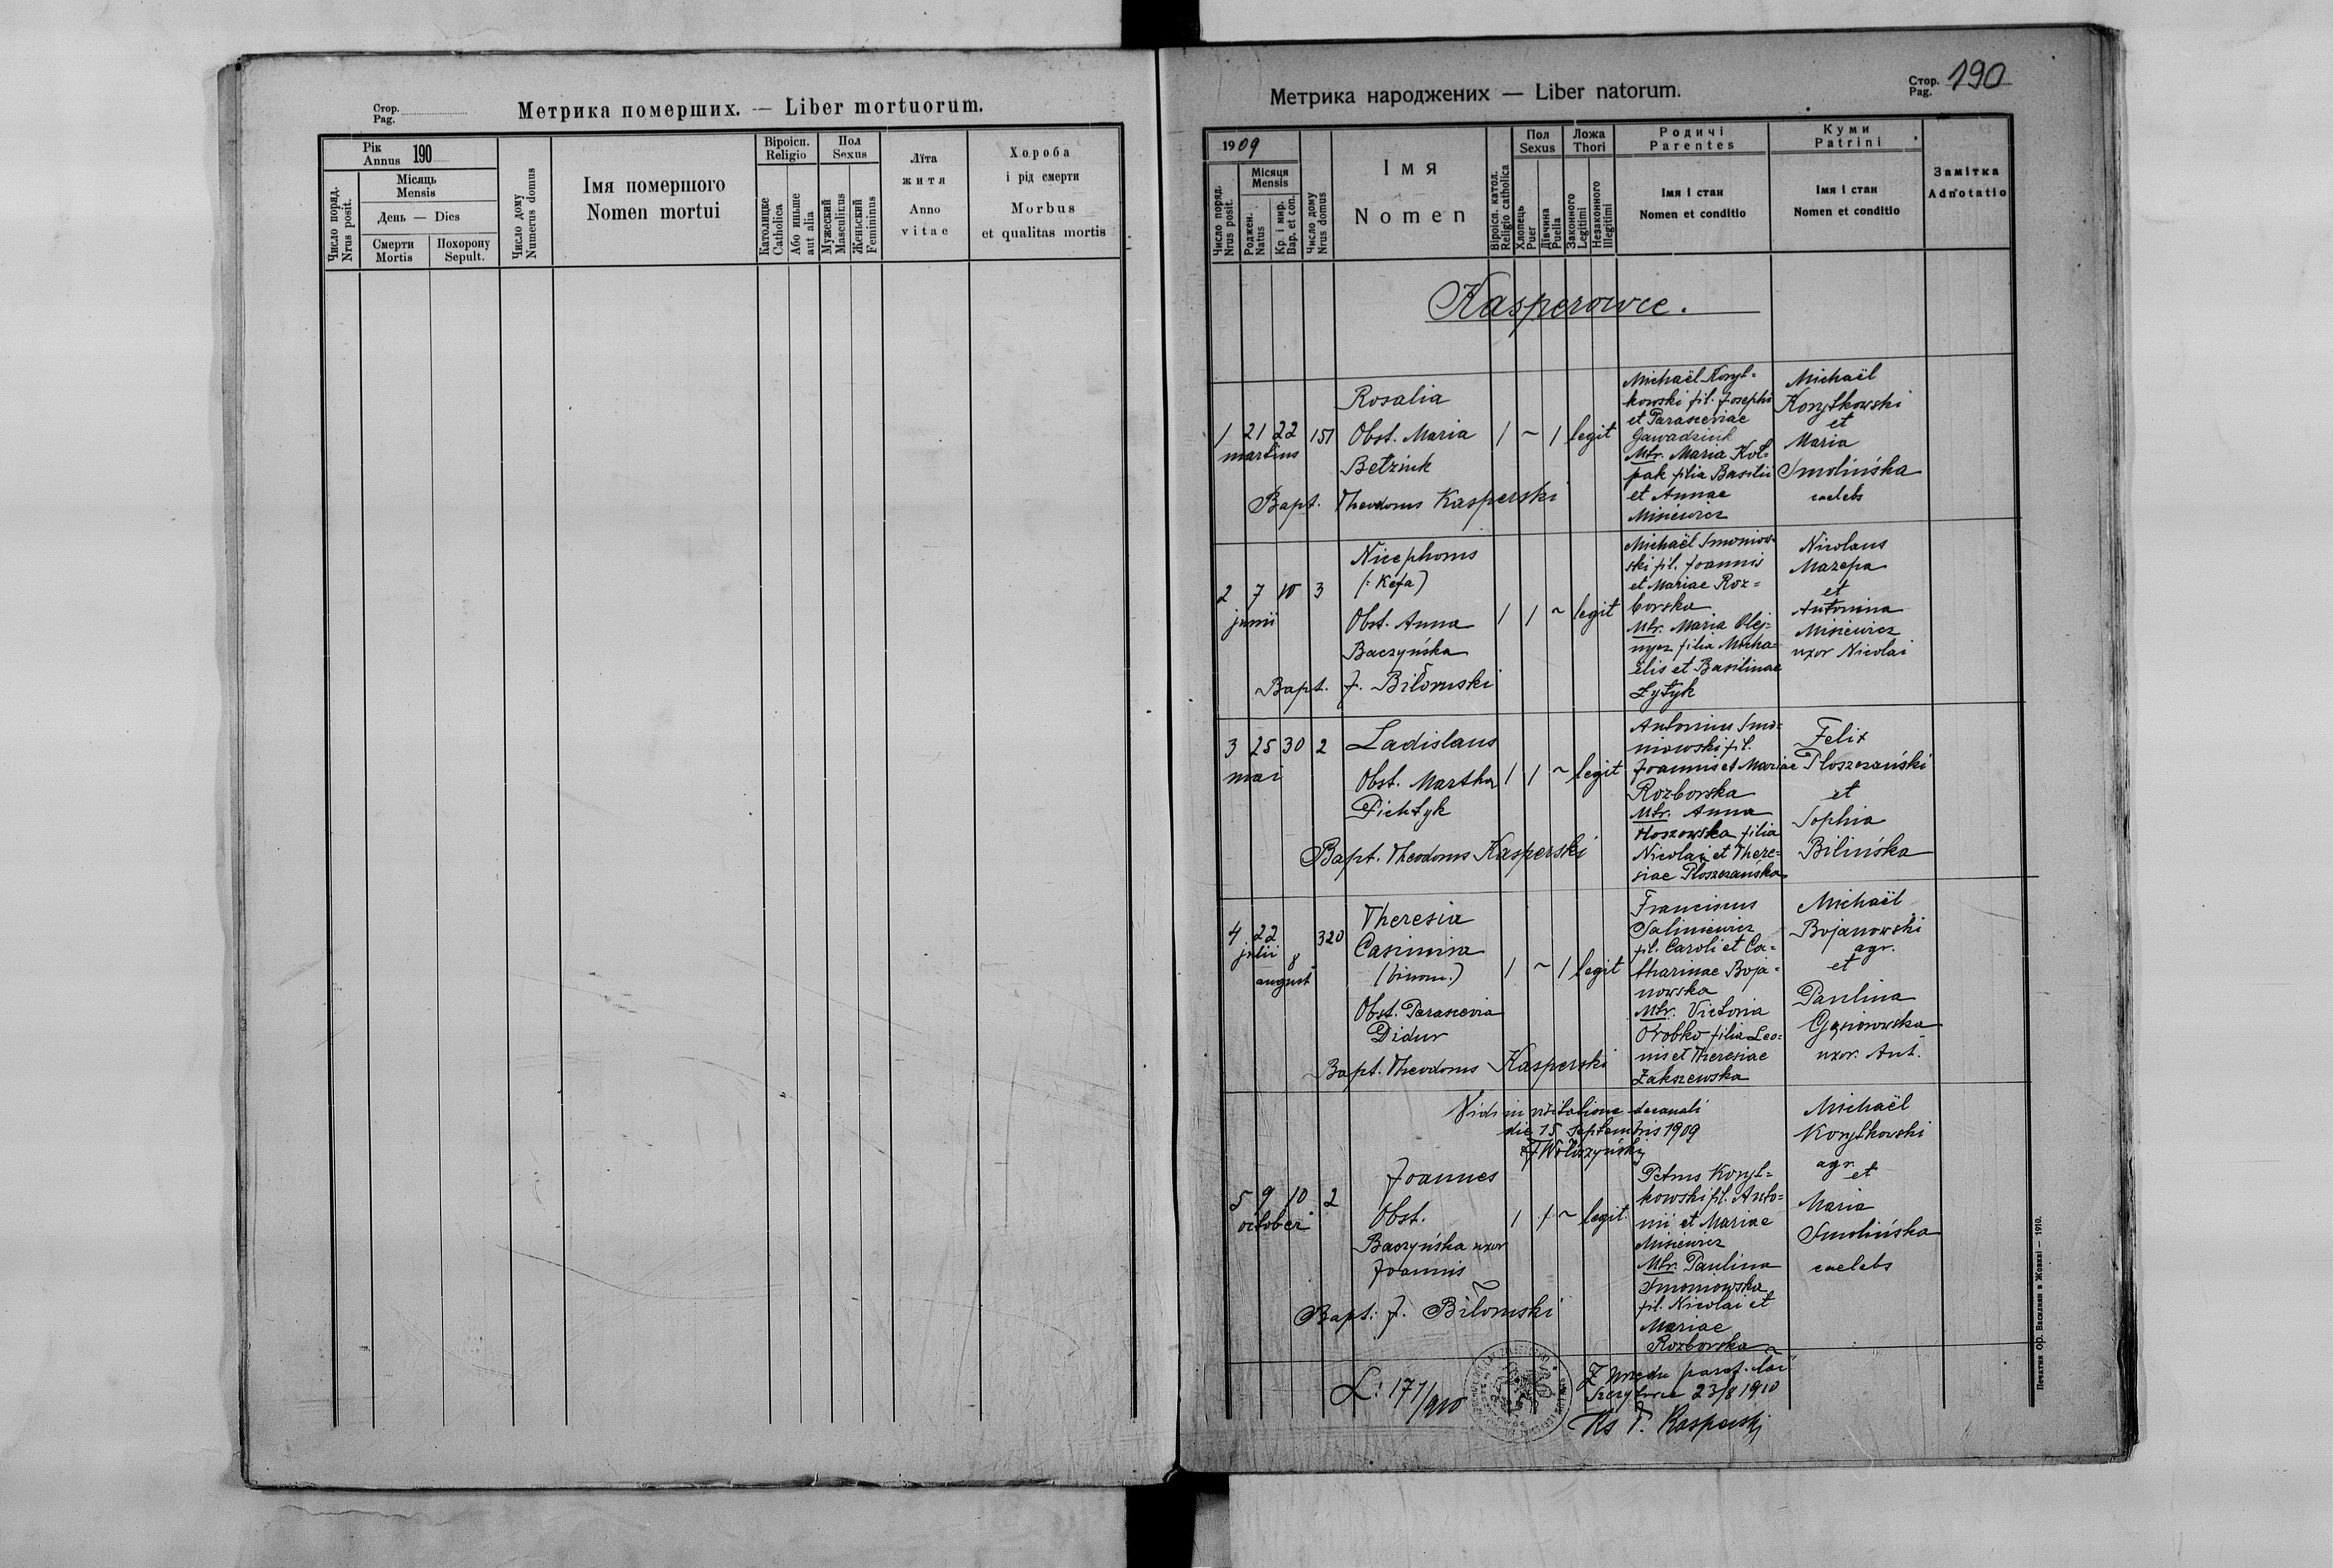 Стор.
Pag.
Метрика померших. — Liber mortuorum.
Рік
Annus 190
Число поряд.
Nrus posit.
Місяць
Mensis
День — Dies
Смерти
Mortis
Похорону
Sepult.
Число дому
Numerus domus
Імя помершого
Nomen mortui
Віроісп.
Religio
Католицке
Catholica
Або иньше
aut alia
Пол
Sexus
Мужеский
Masculinus
Женьский
Femininus
Літа
житя
Anno
vitae
Хороба
і рід смерти
Morbus
et qualitas mortis
Метрика народжених — Liber natorum.
Стор.
Pag. 190
1909
Число поряд.
Nrus posit.
Місяця
Mensis
Роджен.
Natus
Кр. і мир.
Bap. et con.
Число дому
Nrus domus
Імя
Nomen
Віроісп. катол.
Religio catholica
Пол
Sexus
Хлопець
Puer
Дівчина
Puella
Ложа
Thori
Законного
Legitimi
Незаконного
Illegitimi
Родичі
Parentes
Імя і стан
Nomen et conditio
Куми
Patrini
Імя і стан
Nomen et conditio
Замітка
Adnotatio
Kasperowce.
1 21 22 151
martius
Rosalia
Obst. Maria
Betziuk
Bapt. Theodorus Kasperski
1 ~ 1 legit
Michaël Koryt=
kowski fil. Josephi
et Parasceviae
Gawadziuk
Mtr. Maria Koł=
pak filia Basilii
et Annae
Misiewicz
Michaël
Korytkowski
et
Maria
Smolińska
caelebs
2 7 10 3
junii
Nicephorus
(: Kefa)
Obst. Anna
Baczyńska
Bapt. J. Biłoruski
1 1 ~ legit
Michaël Smoniow=
ski fil. Joannis
et Mariae Roz=
borska
Mtr. Maria Olej=
nycz filia Micha=
ëlis et Basilinae
Żytyk
Nicolaus
Mazepa
et
Antonina
Misiewicz
uxor Nicolai
3 25 30 2
mai
Ladislaus
Obst. Martha
Pichtyk
Bapt. Theodorus Kasperski
1 1 ~ legit
Antonius Smo=
niowski fil.
Joannis et Mariae
Rozborska
Mtr. Anna
Hoszowska filia
Nicolai et There=
siae Płoszczańska
Felix
Płoszczański
et
Sophia
Bilińska
4 22 320
julii
8
august
Theresia
Casimira
(binom.)
Obst. Parascevia
Didur
Bapt. Theodorus Kasperski
1 ~ 1 legit
Franciscus
Saliniewicz
fil. Caroli et Ca=
tharinae Boja=
nowska
Mtr. Victoria
Orobko filia Leo=
nis et Theresiae
Zakszewska
Michaël
Bojanowski
agr.
et
Paulina
Gąsiorowska
uxor. Ant.
Vidi in visitatione decanali
die 15 Septembris 1909
5 9 10 2
october
Joannes
Obst.
Baczyńska uxor
Joannis
Bapt. J. Biłoruski
1 1 ~ legit.
Petrus Koryt=
kowski fil. Anto=
nii et Mariae
Misiewicz
Mtr. Paulina
Smoniowska
fil. Nicolai et
Mariae
Rozborska
Michaël
Korytkowski
agr.
et
Maria
Smolińska
caelebs
L: 171/910
Z urzedu paraf. łac
23/8 1910
Ks T. Kasperski
Печатня ОО. Василиян в Жовкві — 1910.